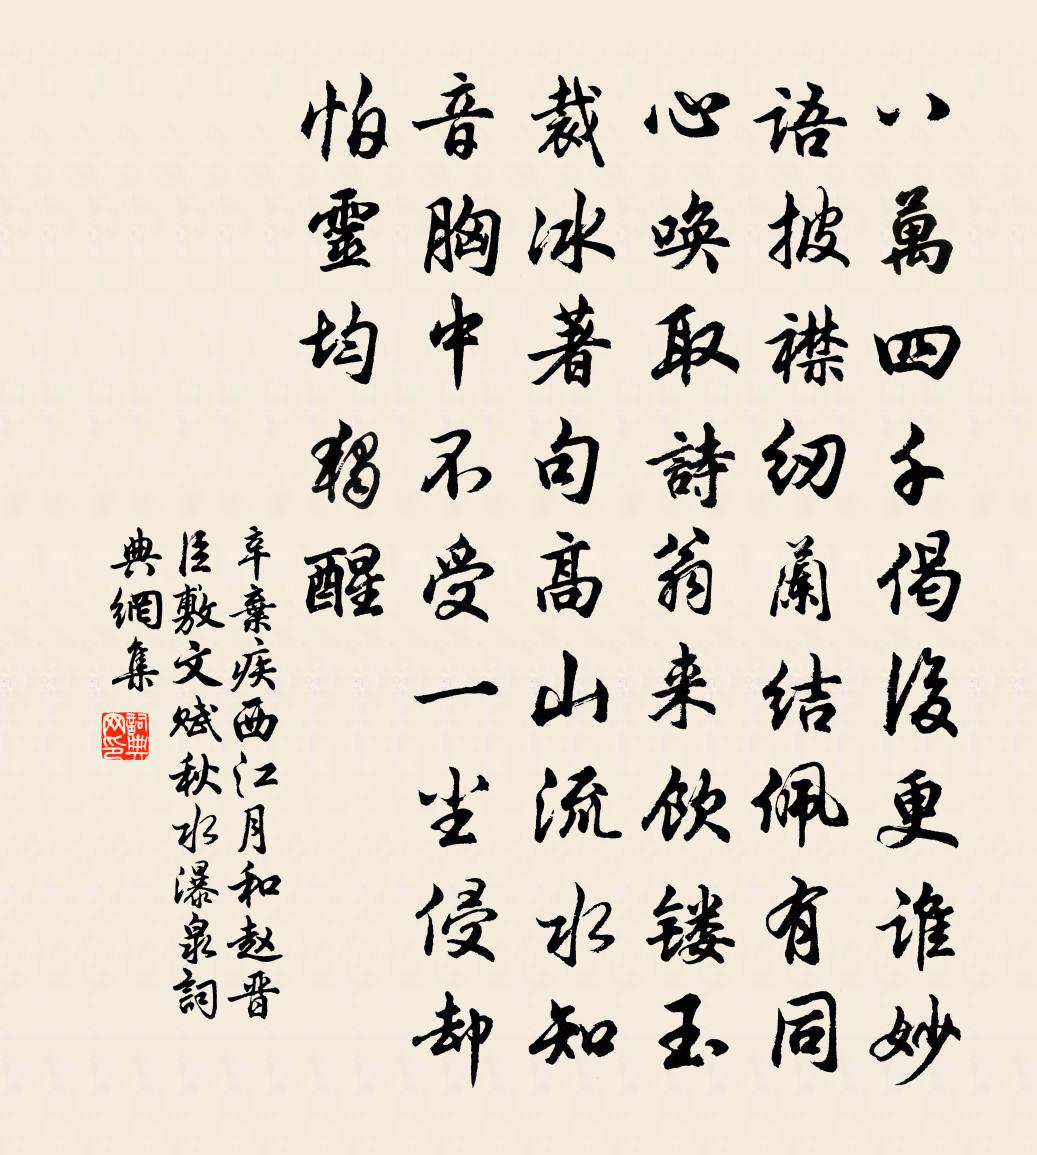 八萬四千偈後更誰妙
語披襟纫蘭结佩有同
心唤取詩翁来飲镂玉
裁冰著句高山流水知
音胸中不受一尘侵却
怕靈均獨醒
辛棄疾西江月和赵晋
臣敷文赋秋水瀑泉詞
典網集
詞典网印